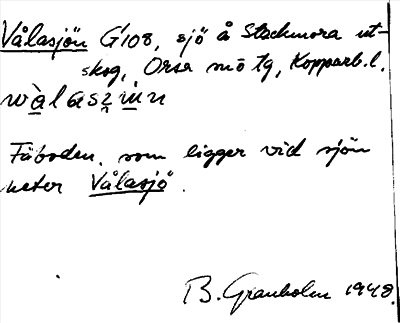 Vålasjön G108, sjö å Stackmora ut-
skog, Orsa
Kopparb.l.
Fäboden, som ligger vid sjön
heter Vålasjö.
B. Granholm 1948.